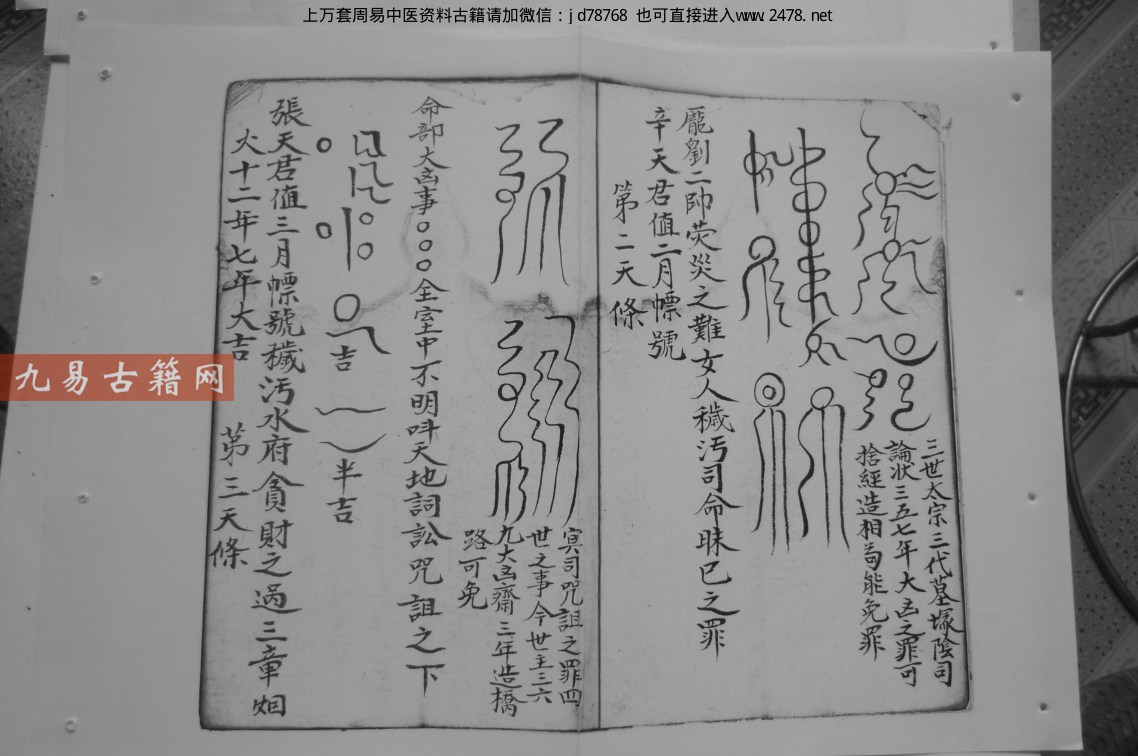 上万套周易中医资料古籍请加微信：jd78768 也可直接进入www.2478.net
三世太宗三代墓塚陰司
論状三五七年大凶之罪可
捨經造相苟能免罪
龐劉二帥荧災之難女人穢汚司命昧巳之罪
辛天君值二月幖號
第二天條
㝠司咒詛之罪四
世之事今世主三六
九大凶齋三年造橋
路可免
命部大凶事○○○全室中不明呌天地詞訟咒詛之下
吉
半吉
張天君值三月幖號穢汚水府貪財之過三章
火十二年七年大吉
第三天條
九易古籍网